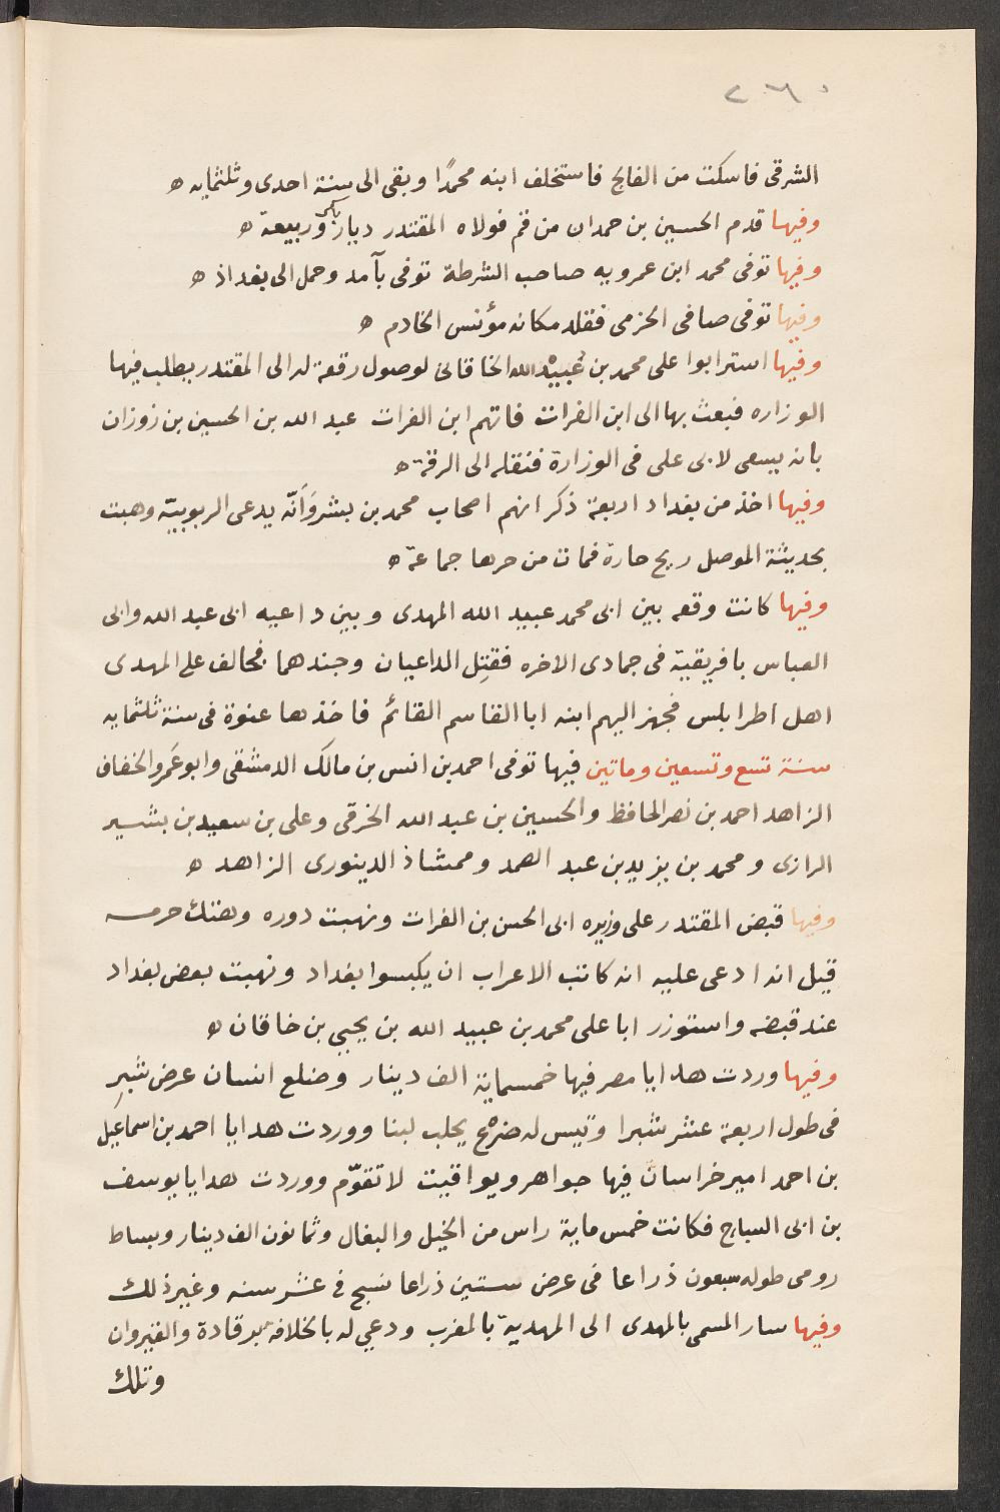 ٢٦٠
الشرقى فاسكت من الفالج فاستخلف ابنه محمدًا وبقى الى سنة احدى وثلثمايه ه
وفيها قدم الحسين بن حمدان من قم فولاه المقتدر ديار بكر وربيعة ه
وفيها توفى محمد ابن عمرويه صاحب الشرطة توفى بآمد وحمل الى بغداذ ه
وفيها توفى صافى الحزمى فقلد مكانه مؤنس الخادم ه
وفيها استرابوا على محمد بن عبيد الله الخاقانى لوصول رقعة له الى المقتدر يطلب فيها
الوزاره فبعث بها الى ابن الفرات فاتهم ابن الفرات عبد الله بن الحسين بن زوزان
بانه يسعى لابى على فى الوزارة فنقله الى الرقة ه
وفيها اخذ من بغداد اربعة ذكر انهم اصحاب محمد بن بشر وَأَنّه يدعى الربوبيّة وهبت
بحديثة الموصل ريح حارة فمات من حرها جماعة ه
وفيها كانت وقعه بين ابى محمد عبيد الله المهدى وبين داعيه ابى عبد الله وابى
العباس بافريقية فى جمادى الاخره فقتِل الداعيان وجندهما فخالف على المهدى
اهل اطرابلس فجهز اليهم ابنه ابا القاسم القائم فاخذها عنوة فى سنة ثلثمايه
سنة تسع وتسعين وماتين فيها توفى احمد بن انس بن مالك الدمشقى وابو عَمرو الخفاف
الزاهد احمد بن نصر الحافظ والحسين بن عبد الله الخرقى وعلى بن سعيد بن بشير
الرازى ومحمد بن يزيد بن عبد الصمد وممشاذ الدينورى الزاهد ه
وفيها قبض المقتدر على وزيره ابى الحسن بن الفرات ونهبت دوره وهتك حرمه
قيل انه ادعى عليه انه كاتب الاعراب ان يكبسوا بغداد ونهبت بعض بغداد
عند قبضه واستوزر ابا على محمد بن عبيد الله بن يحيى بن خاقان ه
وفيها وردت هدايا مصر فيها خمسماية الف دينار وضلع انسان عرض شبرٍ
فى طول اربعة عشر شبرا وتيس له ضرع يحلب لبنا ووردت هدايا احمد بن اسماعيل
بن احمد امير خراسان فيها جواهر ويواقيت لا تقوّم ووردت هدايا يوسف
بن ابى الساج فكانت خمس ماية راس من الخيل والبغال وثمانون الف دينار وبساط
رومى طوله سبعون ذراعا فى عرض ستين ذراعا نسج فى عشر سنه وغير ذلك
وفيها سار المسمى بالمهدى الى المهدية بالمغرب ودعي له بالخلافة برقادة والقيروان
وتلك